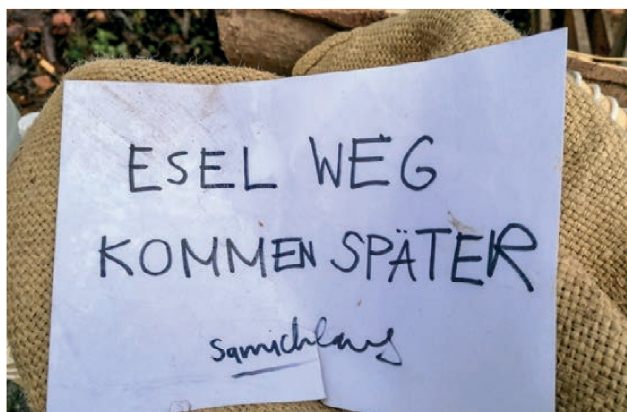 ESEL WEG
KOMMEN SPÄTER
Samichlaus